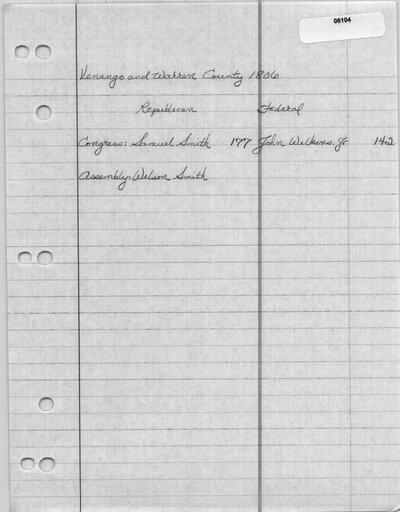 06104
Venango and Warren County 1806
Republican Federal
Congress: Samuel Smith 177 John Wilkins. Jr 142
Assembly: Wilson Smith